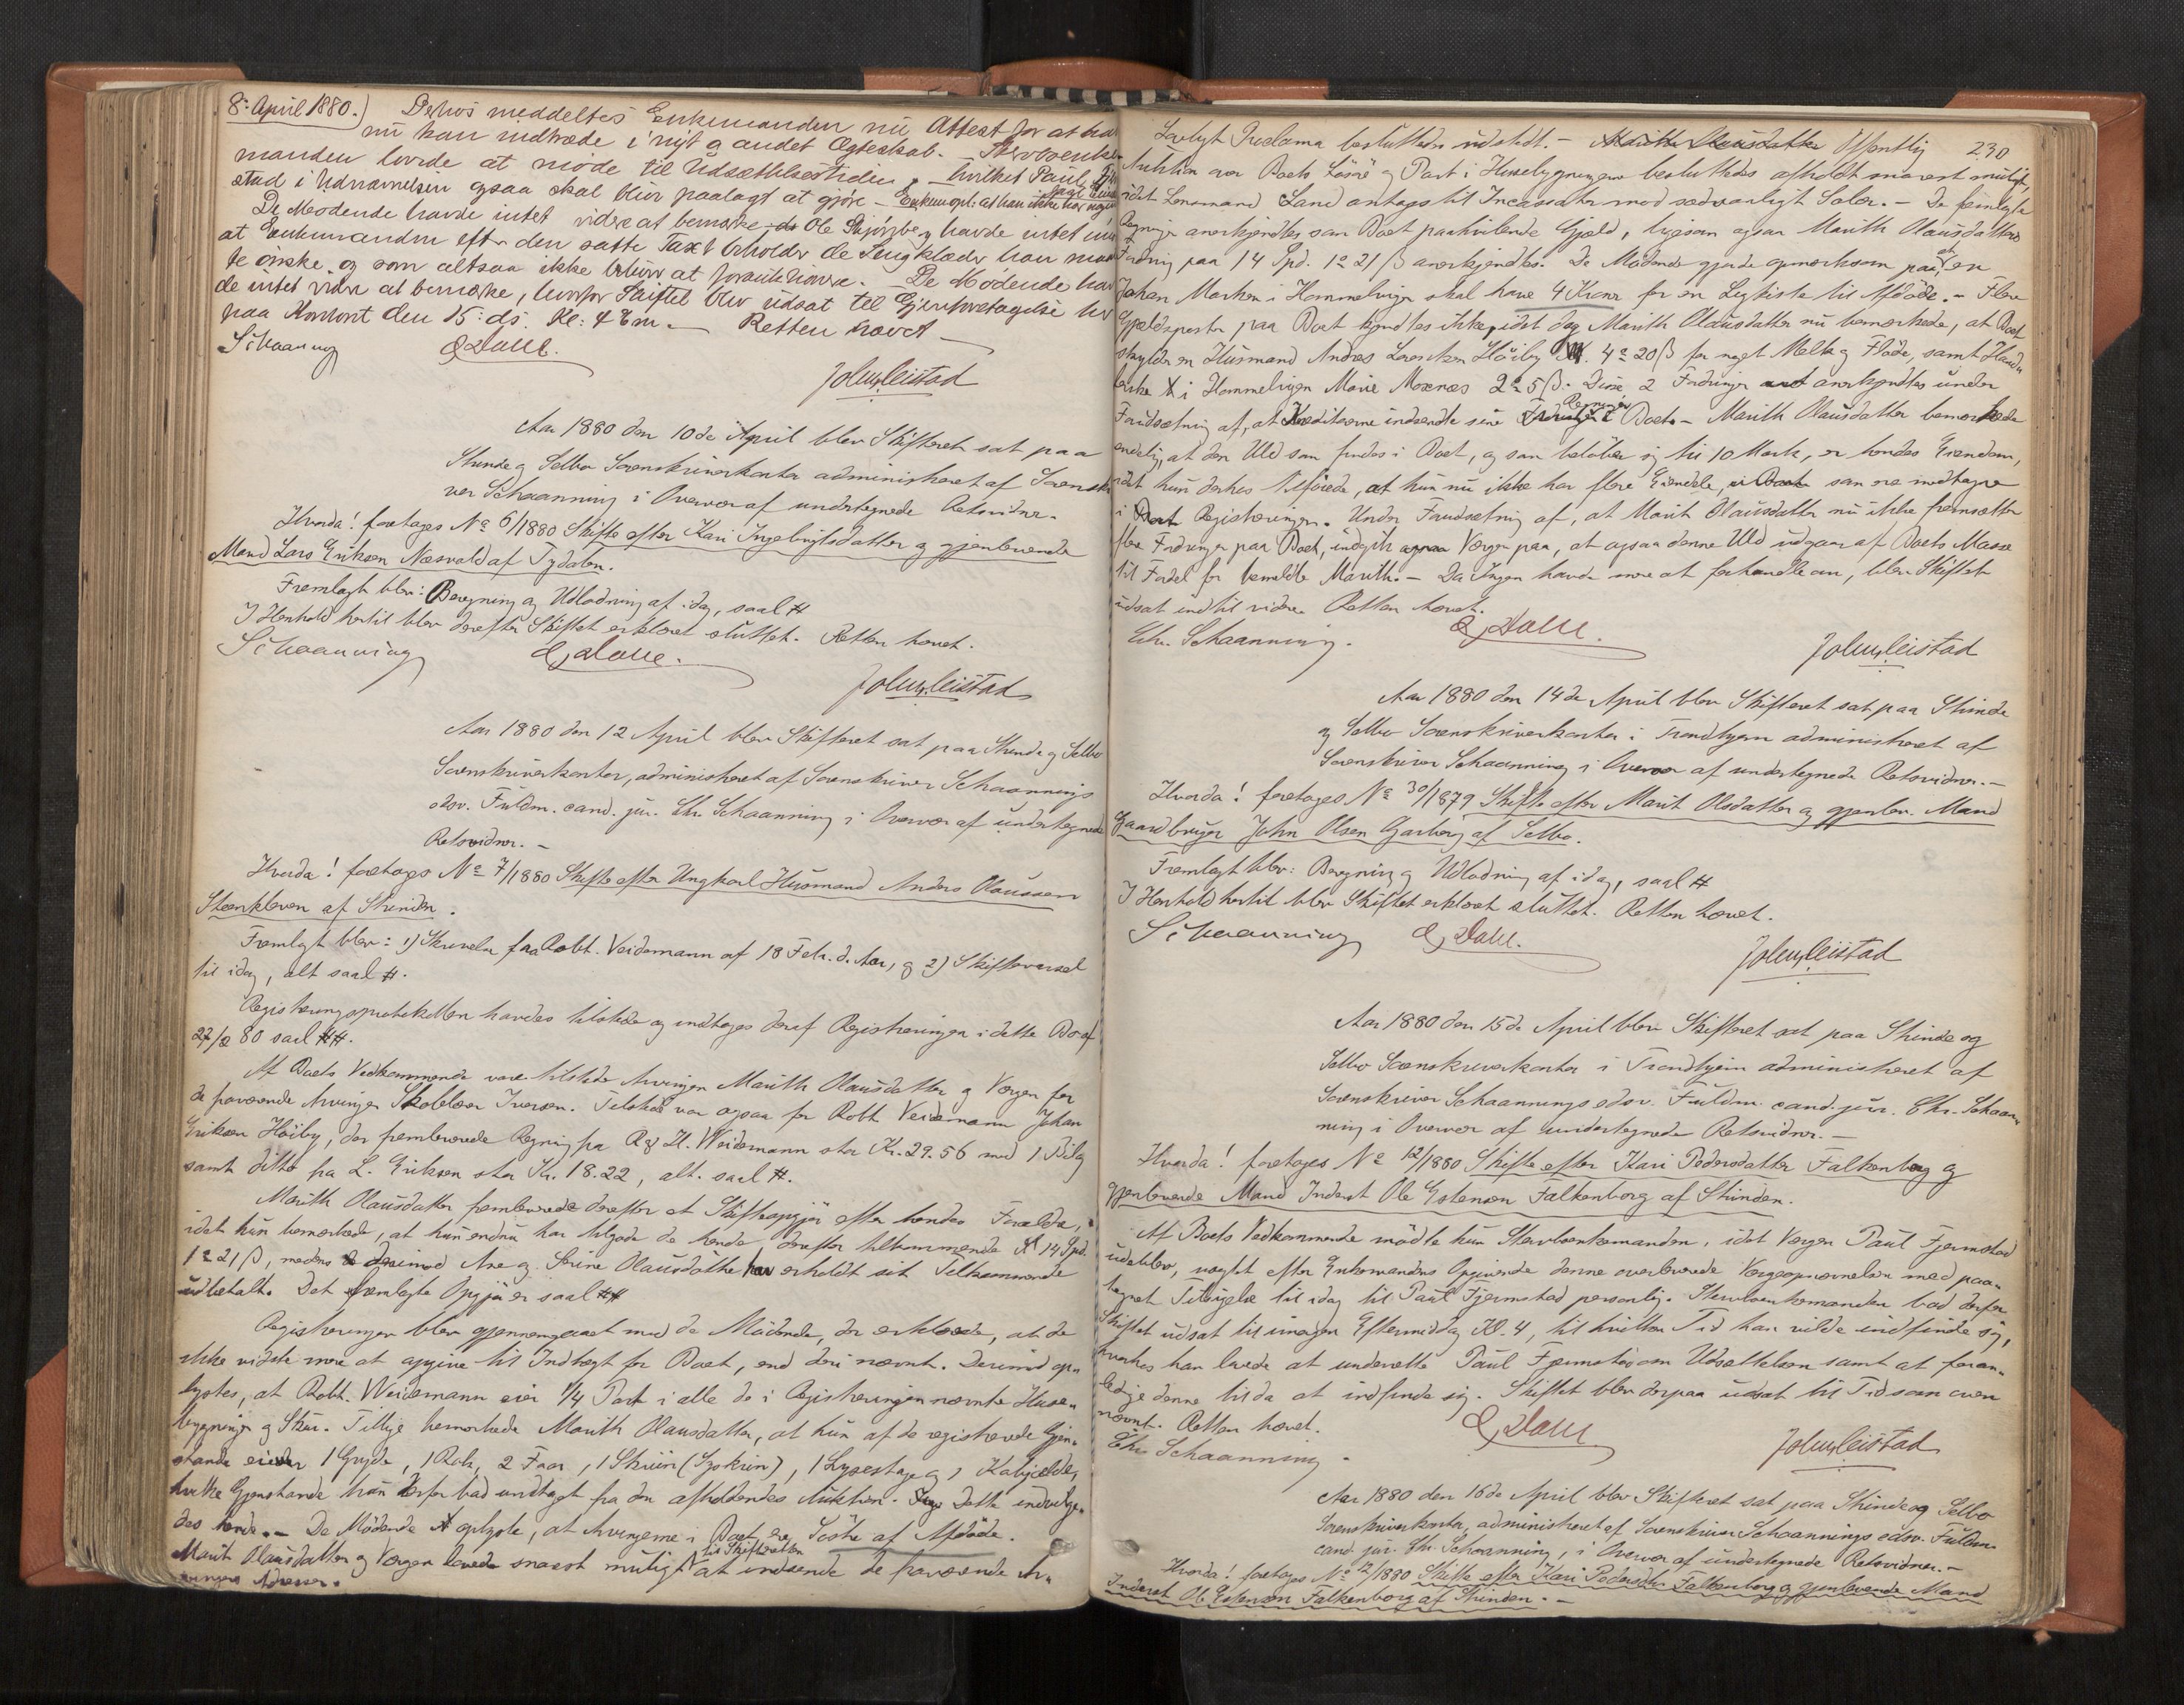 8: April 1880.) Derhos meddeltes Enkemanden nu Attest for at han
nu kan indtræde i nyt og andet Ægteskab. -
manden lovde at møde til Udsættelsestiden, - hvilket Paul
stad i Udnævnelsen ogsaa skal blive paalagt at gjøre -
De Mødende havde intet videre at bemærke Ole havde intet
at Enkemanden efter den satte Taxt beholder de Sengklæder han
te ønske, og som altsaa ikke behøve at . De Mødende hav
de intet videre at bemærke, hvorfor Skiftet blev udsat til Gjenforetagelse her
paa Kontoret den 15: ds. Kl: 4 Em. - Retten hævet -
Schaanning
Dahl.
John Leistad
Aar 1880 den 10de April blev Skifteret sat paa
Strinde og Selbo Sorenskriverkontor administreret af Sorenskri
ver Schaanning i Overvær af undertegnede Retsvidner.
Hvorda! foretages No 6/1880 Skifte efter Kari Ingebrigtsdatter og gjenlevende
Mand Lars Eriksen Næsvold af Tydalen.
Fremlagt blev: Beregning og Udlodning af idag, saal #
I Henhold hertil blev derefter Skiftet erklæret sluttet. Retten hævet.
Schaanning
Dahl.
John Leistad
Aar 1880 den 12 April blev Skifteret sat paa Strinde og Selbo
Sorenskriverkontor, administreret af Sorenskriver Schaannings
edsv. Fuldm. cand. jur. Chr. Schaanning i Overvær af undertegnede
Retsvidner. -
Hvorda! foretages No 7/1880 Skifte efter Ungkarl Husmand Anders Olaussen
Steenkleven af Strinden.
Fremlagt blev: 1) Skrivelse fra Robt. Veidemann af 18 Febr. d. Aar, og 2) Skiftevarsel
til idag, alt saal #.
Registreringsprotokollen havdes tilstede og indtages deraf Registreringen i dette Bo af
27/2 80 saal ##.
Af Boets Vedkommende vare tilstede Arvingen Marith Olausdatter og Værgen for
de fraværende Arvinger Iversen. Tilstede var ogsaa for Robt Veidemann Johan
Eriksen Høiby, der fremleverede Regning fra R & H. Weidemann stor Kr. 29.56 med 1 Bilag
samt ditto fra L. Eriksen stor Kr. 18.22, alt. saal #.
Marith Olausdatter fremleverede derefter et Skifteopgjør efter hendes Forældre,
idet hun bemærkede, at hun endnu har tilgode de hende derefter tilkommende 14 Spd.
1 ort 21 ß, medens derimod Ane og Serine Olausdatter har erholdt sit Tilkommende
udbetalt. Det fremlagte Opgjør er saal ##
Registreringen blev gjennemgaaet med de Mødende, der erklærede, at de
ikke vidste mere at opgive til Indtægt for Boet, end deri nævnt. Derimod op-
lystes, at Robt. Weidemann eier 1/4 Part i alle de i Registreringen nævnte Huse-
bygninger og Skur. Tillige bemærkede Marith Olausdatter, at hun af de registrerede Gjen-
stande eier 1 Gryde, 1 Rok, 2 Faar, 1 Skriin (Syskrin), 1 Lysestage og 1 Kobbjelde,
hvilke Gjenstande hun derfor bad undtaget fra den afholdendes Auktion. Dette indvilge-
des hende. - De Mødende oplyste, at Arvingerne i Boet er Søstre af Afdøde.
Marit Olausdatter og Værgen lovede snarest muligt til Skifteretten at indsende de fraværende Ar-
vingers Adresser.
230
Lovligt Proclama besluttedes udstedt. - Offentlig
Auktion over Boets Løsøre og Part i Husebygningerne besluttedes afholdt snarest muligt,
idet Lensmand Lund antages til Incassator mod sædvanligt Salær. - De fremlagte
Regninger anerkjendtes som Boet paahvilende Gjæld, ligesom ogsaa Marith Olausdatters
Fordring paa 14 Spd. 1 ort 21 ß anerkjendtes. De Mødende gjorde opmærksom paa, at en
Johan Morken i Hommelvigen skal have 4 Kroner for en Ligkiste til Afdøde. - Flere
Gjældsposter paa Boet kjendtes ikke, idet dog Marith Olausdatter nu bemærkede, at Boet
skylder en Husmand Andras Larsen Høiby 4 ort 20 ß for noget Melk og Fløde, samt Hand-
lerske i Hommelvigen Marie Moxnes 2 ort 5 ß. Disse 2 Fordringer anerkjendtes under
Forudsætning af, at Kreditorerne indsendte sine Regninger i Boet. - Marith Olausdatter bemærkede
endelig, at den Uld som findes i Boet, og som beløber sig til 10 Mark, er hendes Eiendom,
idet hun derhos tilføiede, at hun nu ikke har flere Eiendele, som ere medtagne
i Registreringen. Under Forudsætning af, at Marit Olausdatter nu ikke fremsætter
flere Fordringer paa Boet, indgik Værgen paa, at ogsaa denne Uld udgaar af Boets Masse
til Fordel for bemeldte Marith. - Da Ingen havde mere at forhandle om, blev Skiftet
udsat indtil videre. Retten hævet.
Chr. Schaanning.
Dahl.
John Leistad
Aar 1880 den 14de April blev Skifteret sat paa Strinde
og Selbo Sorenskriverkontor i Trondhjem administreret af
Sorenskriver Schaanning i Overvær af undertegnede Retsvidner. -
Hvorda! foretages No 30/1879 Skifte efter Marit Olsdatter og gjenlev. Mand
Gaardbruger John Olsen Garberg af Selbo.
Fremlagt blev: Beregning og Udlodning af idag, saal #
I Henhold hertil blev Skiftet erklæret sluttet. Retten hævet.
Schaanning
Dahl.
John Leistad
Aar 1880 den 15de April blev Skifteret sat paa Strinde og
Selbo Sorenskriverkontor i Trondhjem administreret af
Sorenskriver Schaannings edsv. Fuldm. cand. jur. Chr. Schaan-
ning i Overvær af undertegnede Retsvidner. -
Hvorda! foretages No 12/1880 Skifte efter Kari Pedersdatter Falkenborg og
gjenlevende Mand Inderst Ole Estensen Falkenborg af Strinden.
Af Boets Vedkommende mødte kun Stervboenkemanden, idet Værgen Paul Fjermstad
udeblev, uagtet efter Enkemandens Opgivende denne overleverede Værgeopnævnelsen med paa-
tegnet Tilsigelse til idag til Paul Fjermstad personlig. Stervboenkemanden bad derfor
Skiftet udsat til imorgen Eftermiddag Kl. 4, til hvilken Tid han vilde indfinde sig,
hvorhos han lovede at underrette Paul Fjermstad om Udsættelsen samt at foran-
ledige denne til da at indfinde sig. Skiftet blev derpaa udsat til Tid som oven
nævnt. Retten hævet.
Chr. Schaanning.
Dahl
John Leistad
Aar 1880 den 16de April blev Skifteret sat paa Strinde og Selbo
Sorenskriverkontor, administreret af Sorenskriver Schaannings edsv. Fuldm.
cand. jur. Chr. Schaanning, i Overvær af undertegnede Retsvidner. -
Hvorda! foretages No 12/1880 Skifte efter Kari Pedersdtr Falkenborg og gjenlevende Mand
Inderst Ole Estensen Falkenborg af Strinden. -